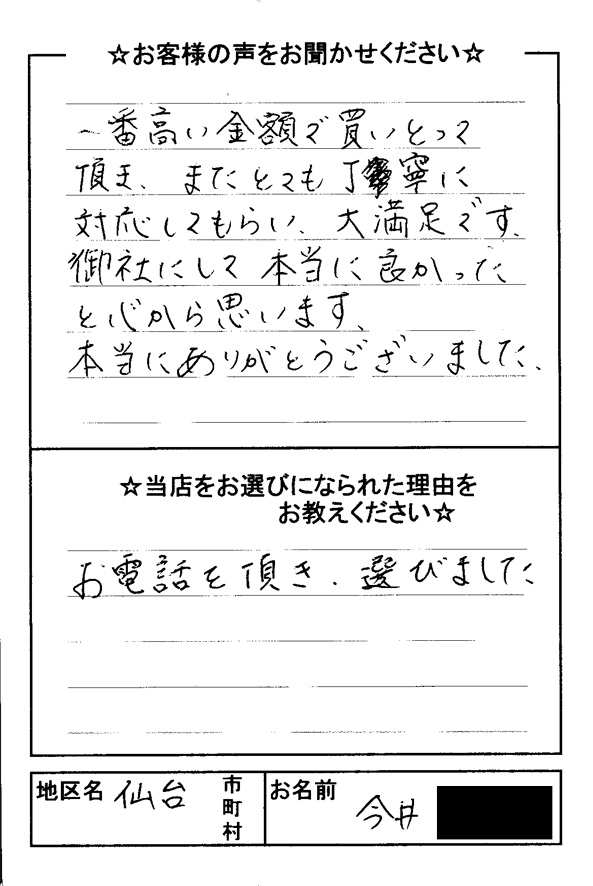 ☆お客様の声をお聞かせください☆
一番高い金額で買いとって
頂き、またとても丁寧に
対応してもらい、大満足です。
御社にして本当に良かった
と心から思います。
本当にありがとうございました。
☆当店をお選びになられた理由を
お教えください☆
お電話を頂き、選びました
地区名 仙台 市町村 お名前 今井